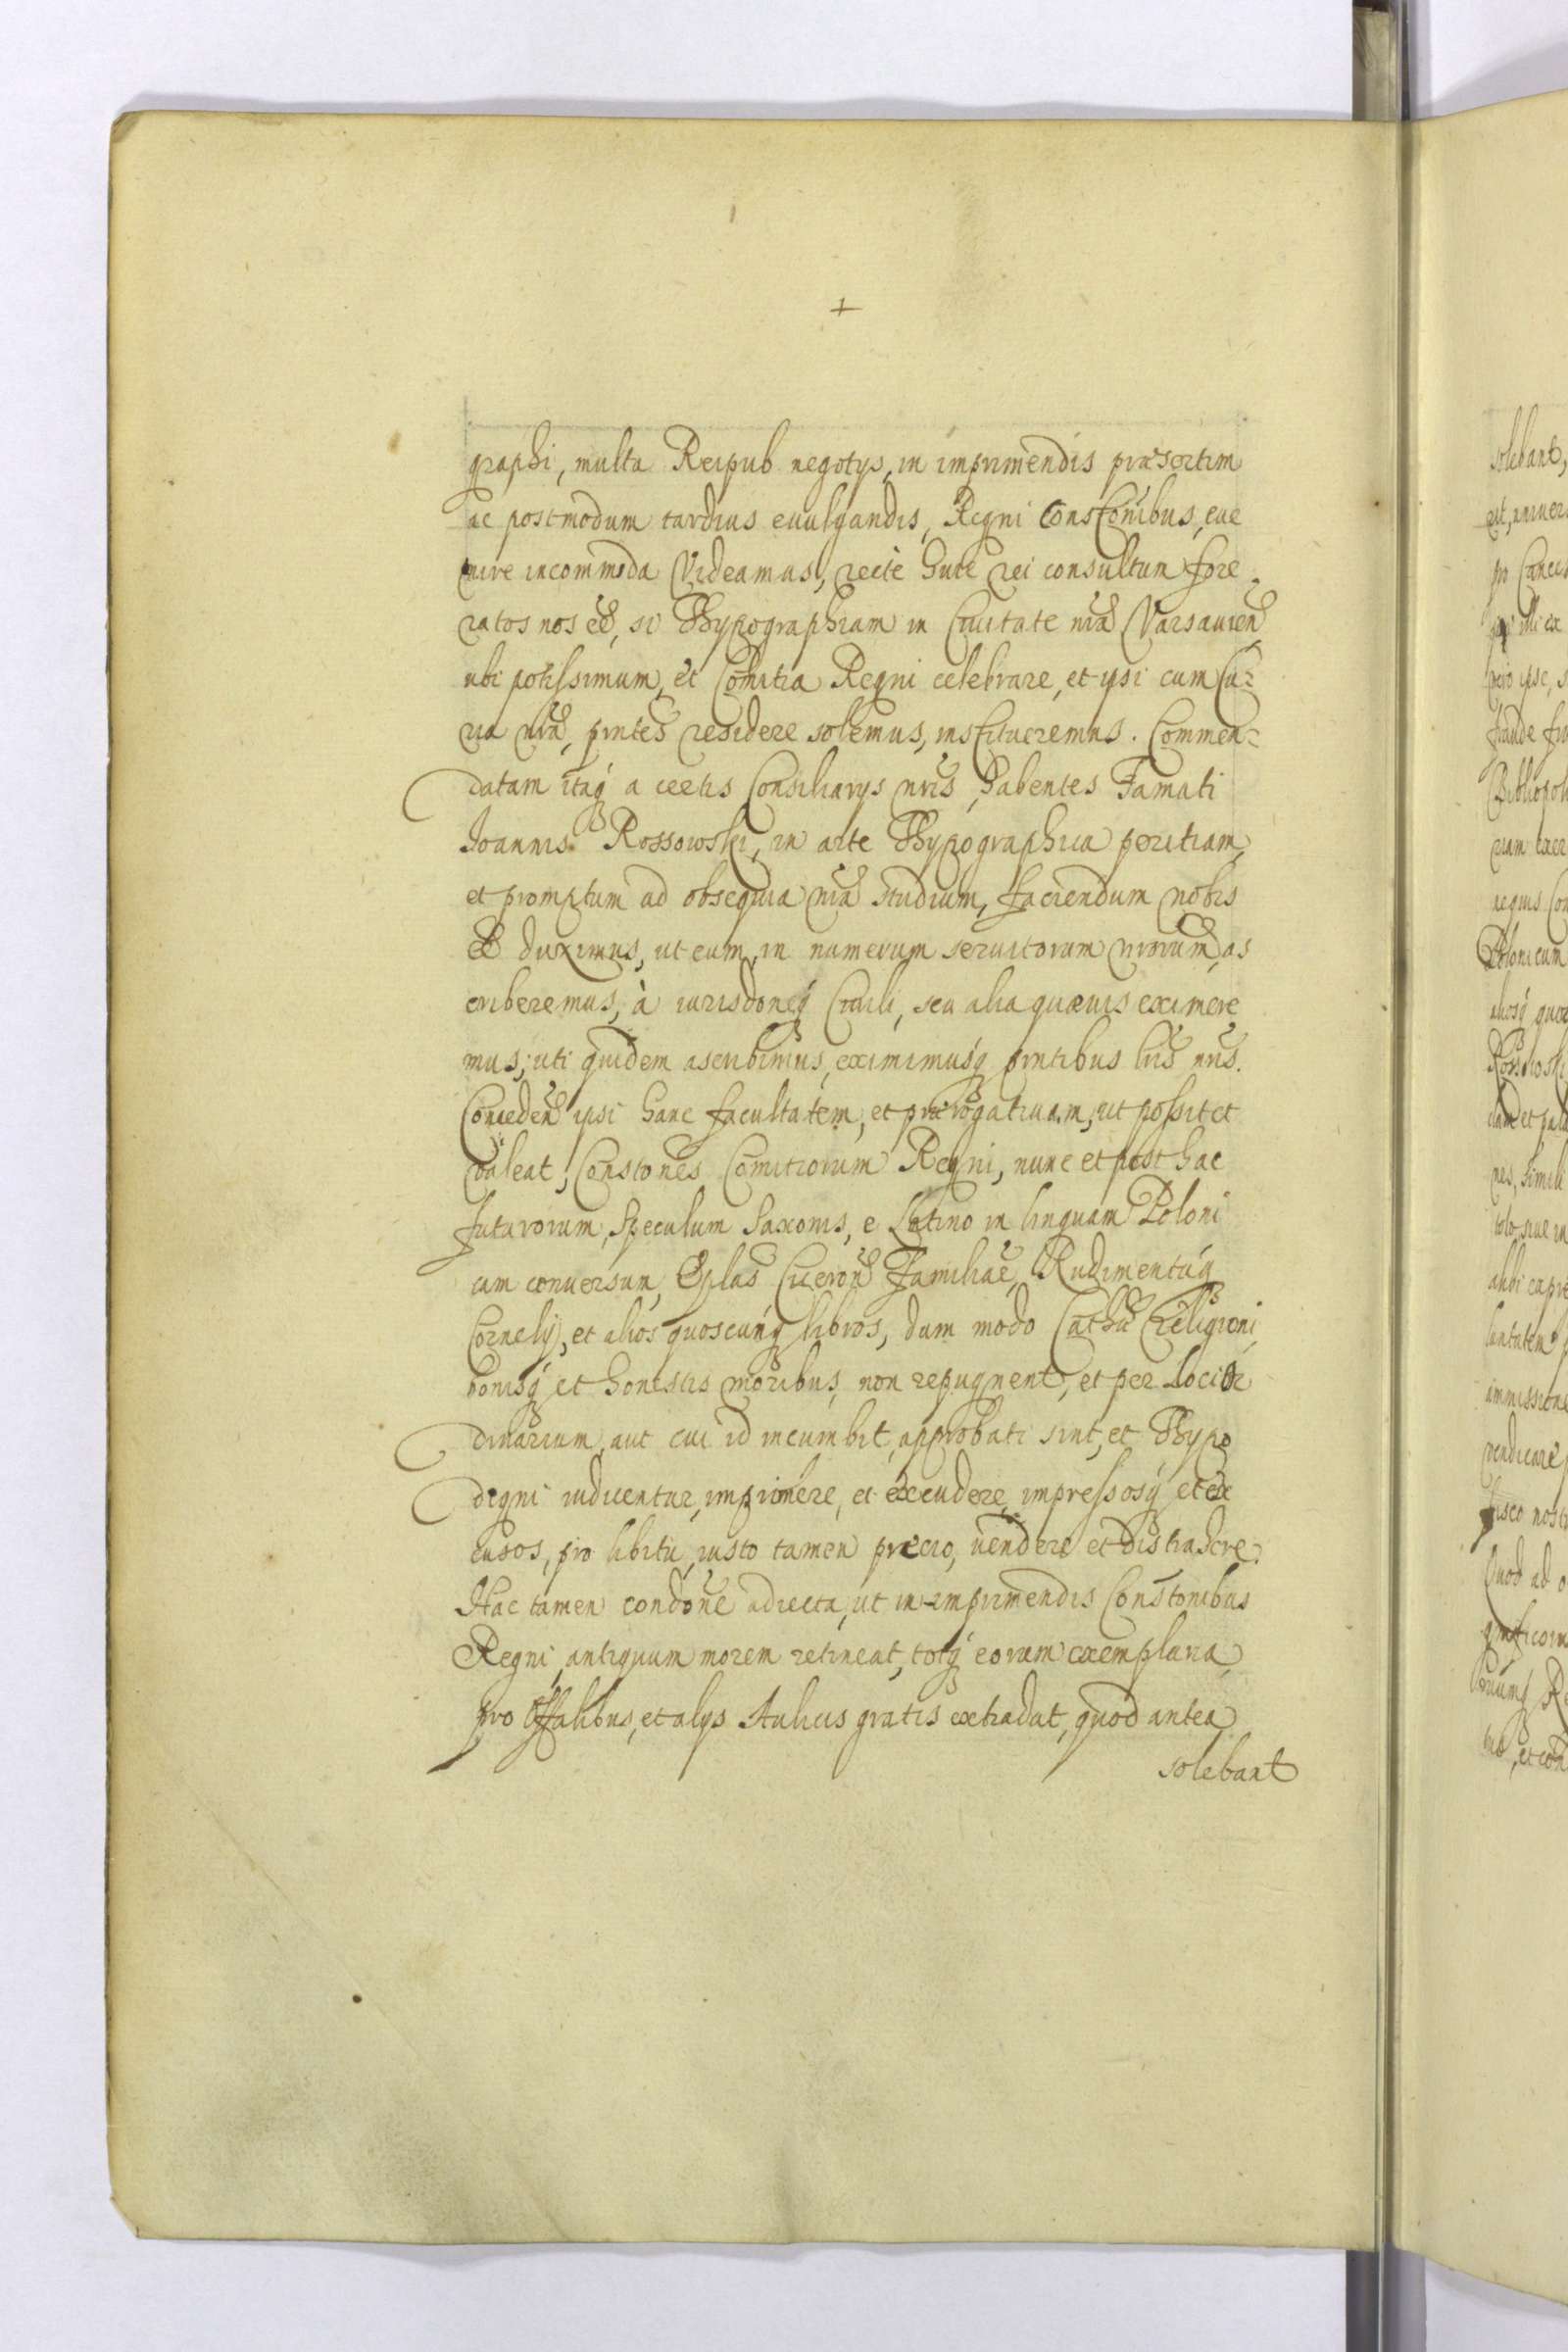 +
graphi, multa Reipub negotys, in imprimendis præsertim
ac postmodum tardius euulgandis, Regni Constõnibus, eue
nire incommoda Videamus, recte huic rei consultum fore
ratos nos eẽ, si Thypographiam in Ciuitate nrã Varsauień
ubi potissimum, et Comitia Regni celebrare, et ipsi cum Cu-
ria nrã, pñtes residere solemus, institueremus. Commen-
datam itaq́ a certis Consiliarys nris, habentes Famati
Joannis Rossowski, in arte Thypographica peritiam,
et promptum ad obsequia nrã studium, faciendum nobis
eẽ duximus, ut eum, in numerum seruitorum nrorum, as
criberemus, à iurisdõneq́ Ciuili, seu alia quæuis eximere
mus; uti quidem ascribimus, eximimusq́ pñtibus lris nris.
Concedeñ ipsi hanc facultatem, et prærogatiuam, ut possit et
valeat, Constones Comitiorum Regni, nunc et post hac
futurorum, Speculum Saxonis, e Latino in linguam Poloni
cam conuersum, Eplas Ciceroñ Familiaẽ, Rudimentaq́
Cornely, et alios quoscunq́ libros, dum modo Cathã Religioni,
bonisq́ et honestis moribus, non repugnent, et per Loci Or
dinarium, aut cui id incumbit, approbati sint, et Thypo
digni iudicentur, imprimere, et excudere, impressosq́ et ex
cusos, pro libitu, iusto tamen precio, uendere et distrahere.
Hac tamen condõne adiecta, ut in imprimendis Constonibus
Regni, antiquum morem retineat, totq́ eorum exemplaria,
pro Offalibus, et alys Aulicis gratis extradat, quod antea
solebant